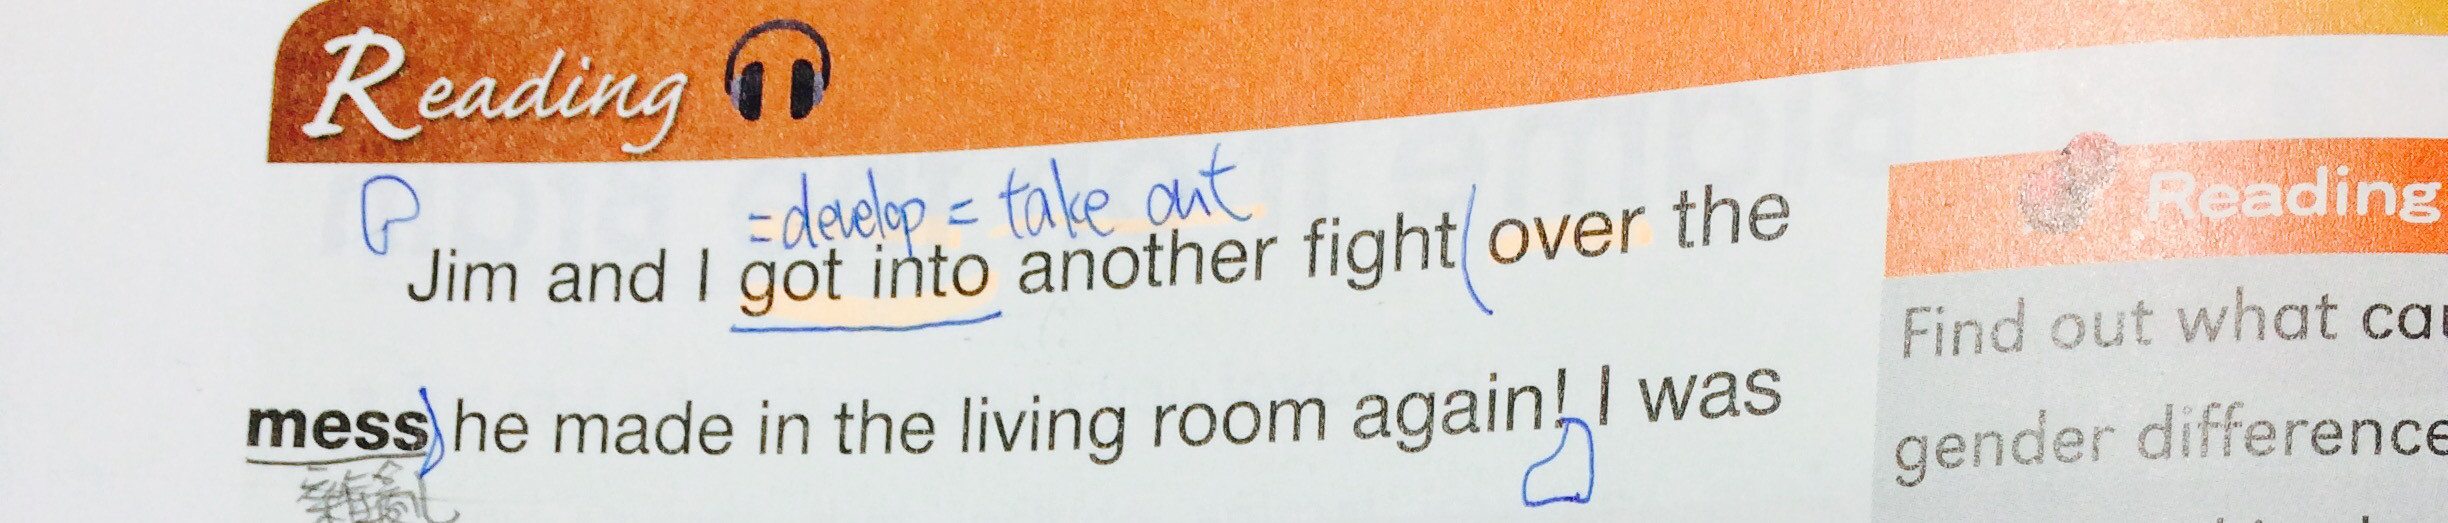 Reading
=develop = take out
Jim and I got into another fight (over the
mess) he made in the living room again! I was
雜亂
Reading
Find out what
gender difference